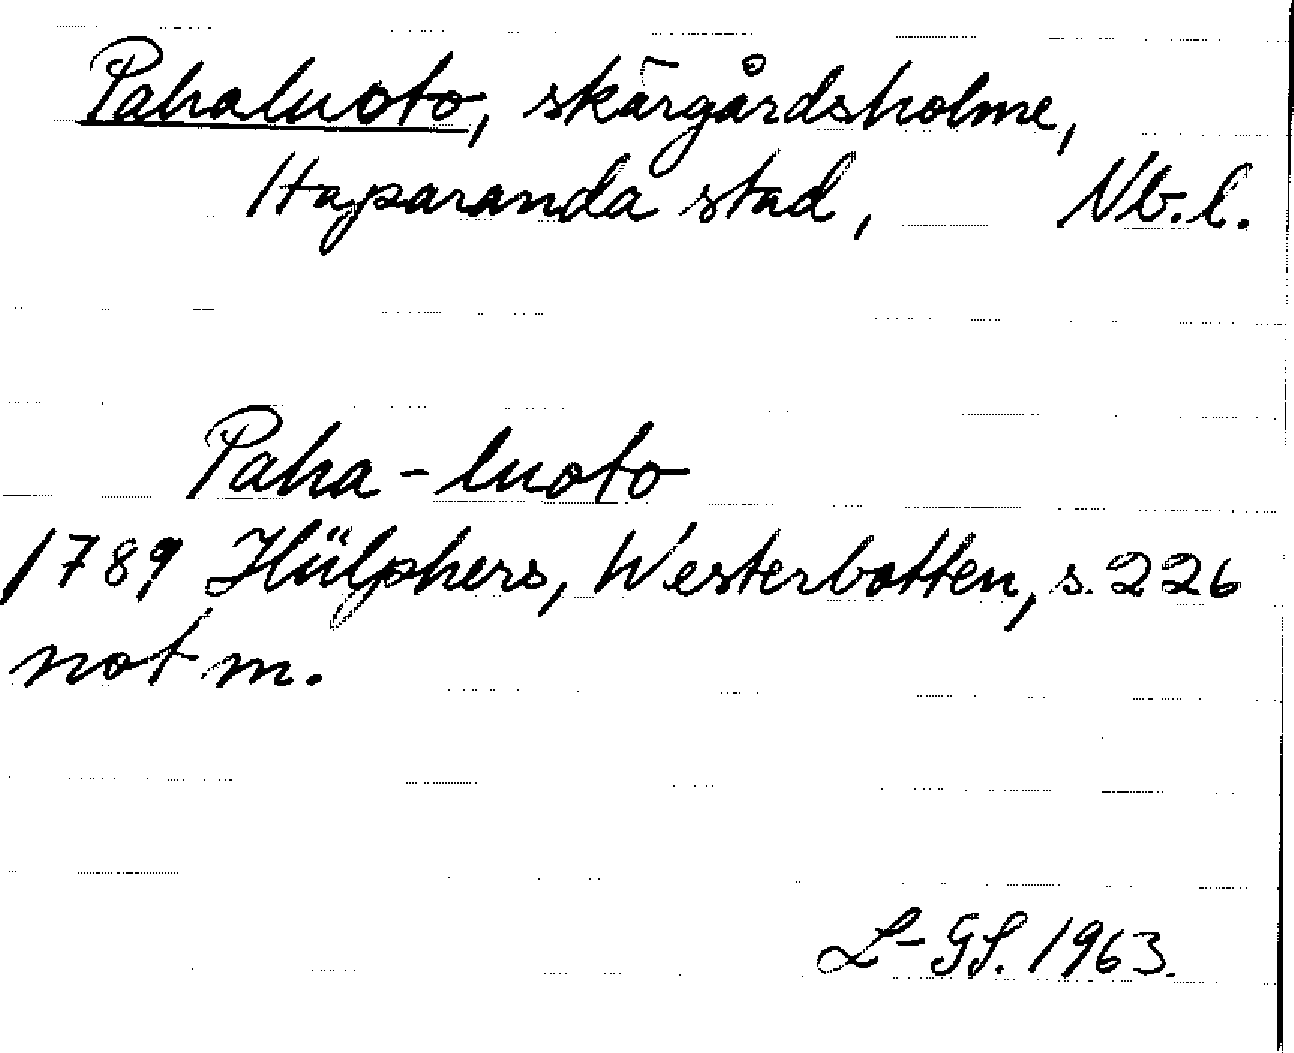 Pahaluoto, skärgårdsholme,
Haparanda stad, Nb. l.
Paha-luoto
1789 Hülphers, Westerbotten, s. 226
not m.
L-GS. 1963.